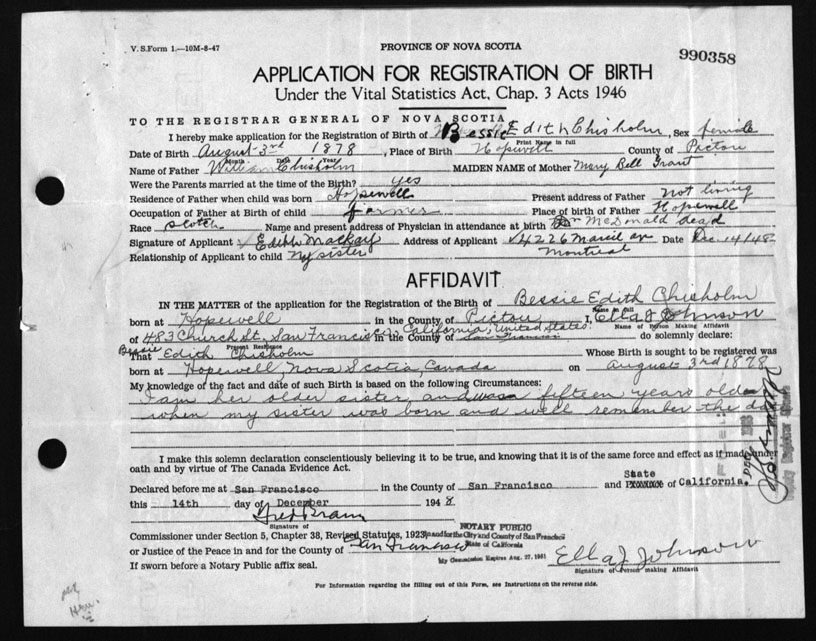 V. S. Form 1.—10M-8-47
PROVINCE OF NOVA SCOTIA
990358
APPLICATION FOR REGISTRATION OF BIRTH
Under the Vital Statistics Act, Chap. 3 Acts 1946
TO THE REGISTRAR GENERAL OF NOVA SCOTIA
I hereby make application for the Registration of Birth of Bessie Edith Chisholm, Sex female
Print Name in full
Date of Birth August 3rd 1878, Place of Birth Hopewell County of Pictou
Month Date Year
Name of Father William Chisholm MAIDEN NAME of Mother Mary Bell Grant
Were the Parents married at the time of the Birth? yes
Residence of Father when child was born Hopewell Present address of Father Not living
Occupation of Father at Birth of child farmer Place of birth of Father Hopewell
Race Scotch Name and present address of Physician in attendance at birth Dr McDonald dead
Signature of Applicant Edith Mackay Address of Applicant 4226 Marcil av Date Dec 14/48
Relationship of Applicant to child My sister Montreal
AFFIDAVIT
IN THE MATTER of the application for the Registration of the Birth of Bessie Edith Chisholm
Name in full
born at Hopewell in the County of Pictou I, Ella J Johnson
Name of Person Making Affidavit
of 483 Church St, San Francisco, California, United States in the County of San Francisco do solemnly declare:
Present Residence
That Bessie Edith Chisholm Whose Birth is sought to be registered was
born at Hopewell, Nova Scotia, Canada on August 3rd 1878
My knowledge of the fact and date of such Birth is based on the following Circumstances:
I am her older sister and was fifteen years old
when my sister was born and well remember the
I make this solemn declaration conscientiously believing it to be true, and knowing that it is of the same force and effect as if made under
oath and by virtue of The Canada Evidence Act.
Declared before me at San Francisco in the County of San Francisco and State of California.
this 14th day of December 1948
Signature of
Commissioner under Section 5, Chapter 38, Revised Statutes, 1923,
or Justice of the Peace in and for the County of San Francisco
If sworn before a Notary Public affix seal.
NOTARY PUBLIC
In and for the City and County of San Francisco
State of California
My Commission Expires Aug. 27, 1951
Ella J Johnson
Signature of Person making Affidavit
For Information regarding the filling out of this Form, see Instructions on the reverse side.